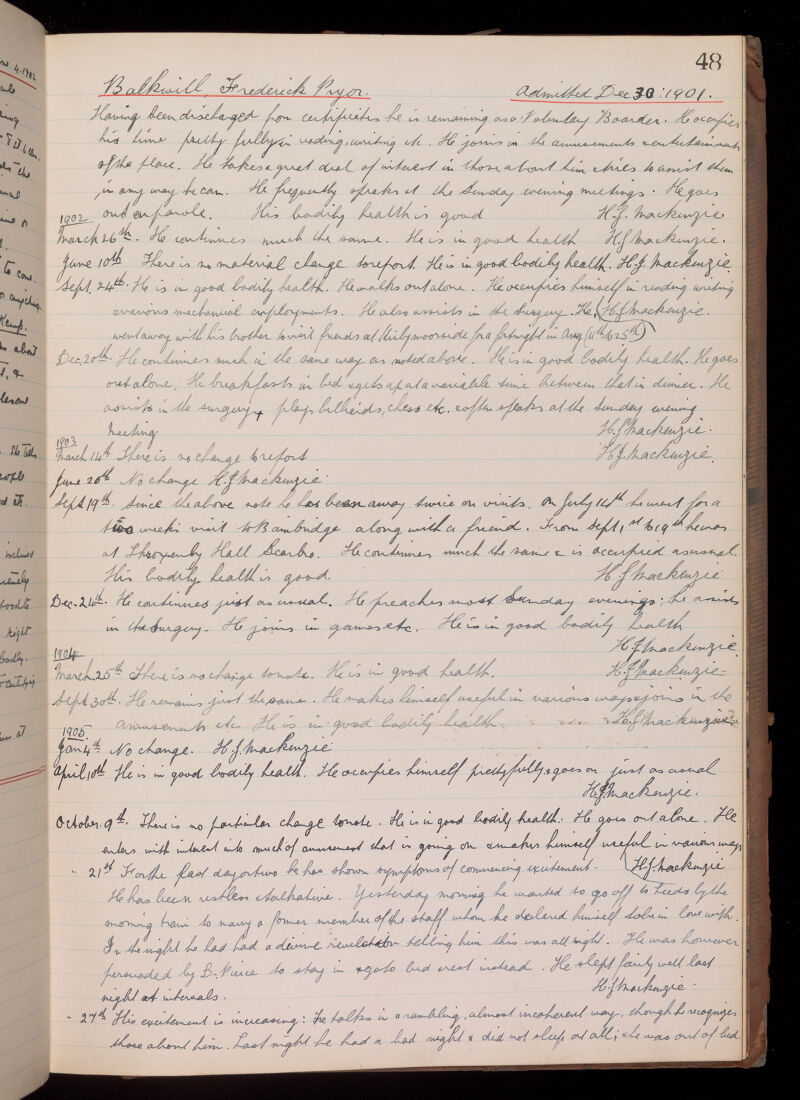 48
Balkwill, Frederick Pryor.
Admitted Dec 30: 1901.
Having been discharged from certificates he is remaining as a Voluntary Boarder. He occupies
his time pretty fully in reading, writing etc. He joins in the amusements & entertainments
of the place. He takes a great deal of interest in those about him & tries to assist them
in any way he can. He frequently speaks at the Sunday evening meetings. He goes
out on parole. His bodily health is good H.J. Mackenzie
1902
March 26th. He continues much the same. He is in good health H.J. Mackenzie.
June 10th There is no material change to report. He is in good bodily health. H.J. Mackenzie.
Sept. 24th. He is in good bodily health. He walks out alone. He occupies himself in reading writing
& various mechanical employments. He also assists in the surgery. He (H.J. Mackenzie.
went away with his brother to visit friends at Kirbymoorside for a fortnight in Aug (11th to 25th)
Dec. 20th. He continues much in the same way as noted above. He is in good bodily health. He goes
out alone. He breakfasts in bed & gets up at a variable time between that & dinner. He
assists in the surgery & plays billiards, chess etc. & often speaks at the Sunday evening
Meeting. H.J. Mackenzie.
1903
March 14th There is no change to report H.J. Mackenzie.
June 20th No change H.J. Mackenzie.
Sept 19th. Since the above note he has been away twice on visits. On July 14th he went for a
two weeks visit to Bambridge along with a friend. From Sept 1st to 19th he was
at Throxenby Hall Scarbro. He continues much the same & is occupied as usual.
His bodily health is good. H.J. Mackenzie
Dec. 24th. He continues just as usual. He preaches most Sunday evenings; he assists
in the surgery. He joins in games etc. He is in good bodily health
H.J. Mackenzie.
1904
March 25th There is no change to note. He is in good health. H.J. Mackenzie
Sept 30th. He remains just the same. He makes himself useful in various ways & joins in the
amusements etc. He is in good bodily health H.J. Mackenzie
1905
Jan 4th No change. H.J. Mackenzie
April 10th He is in good bodily health. He occupies himself pretty fully & goes on just as usual
H.J. Mackenzie.
October. 9th. There is no particular change to note. He is in good bodily health. He goes out alone. He
enters with interest into much of amusement that is going on & makes himself useful in various ways
" 21st For the past day or two he has shown symptoms of commencing excitement. (H.J. Mackenzie
He has been restless & talkative. Yesterday morning he wanted to go off to Leeds by the
morning train to marry a former member of the staff whom he declared himself to be in love with.
In the night he had had a divine revelation telling him this was all right. He was however
persuaded by B. Pierce to stay in & go to bed & rest instead. He slept fairly well last
night at intervals. H.J. Mackenzie.
" 27th His excitement is increasing: He talks in a rambling, almost incoherent way, though he recognizes
those about him. Last night he had a bad night & did not sleep at all; & he was out of bed